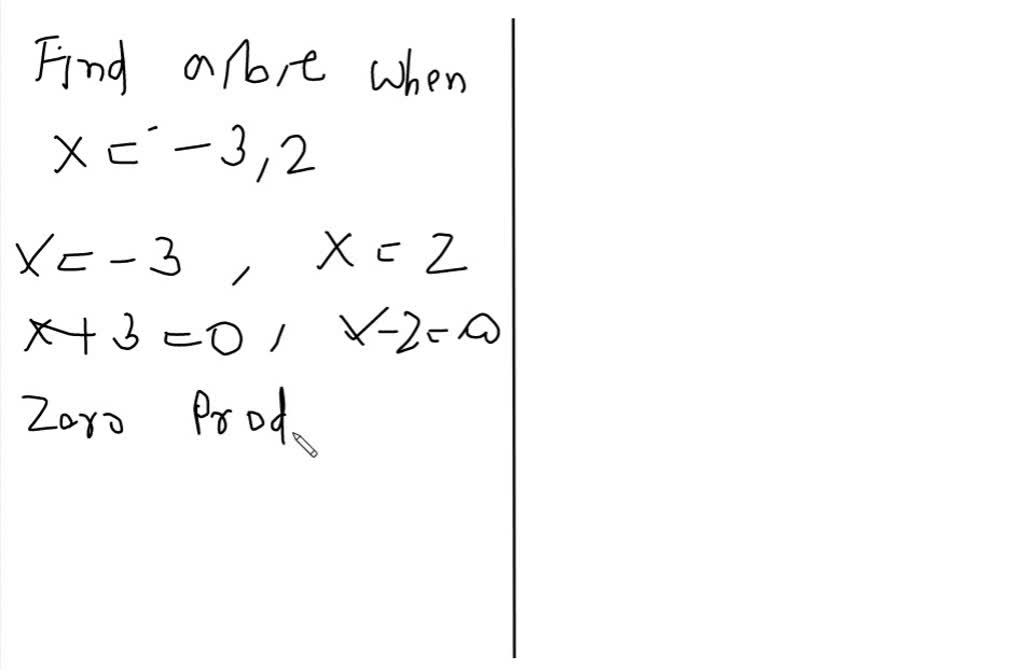 Find a, b, c when
x = -3, 2
x = -3 , x = 2
x + 3 = 0 , x - 2 = 0
Zero Prod